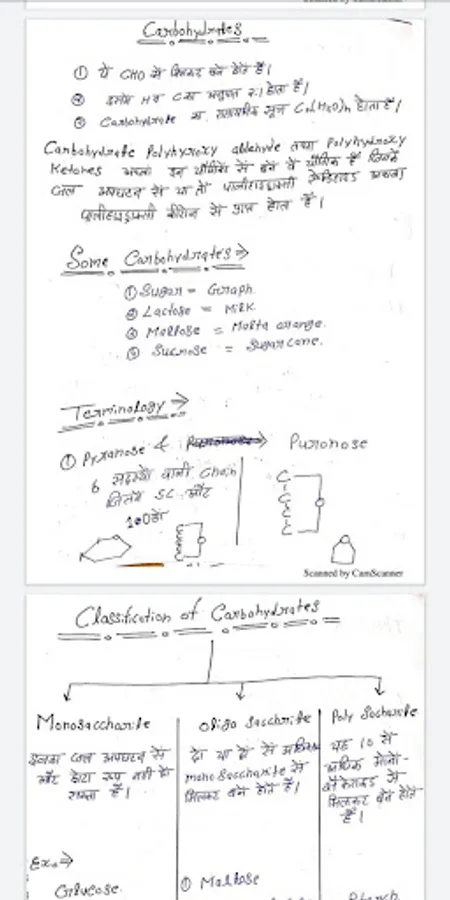 Carbohydrates
① ये CHO से मिलकर बने होते हैं।
② इनमें H व O का अनुपात 2:1 होता है।
③ Carbohydrate का रासायनिक सूत्र Cn(H2O)n होता है।
Carbohydrate Polyhyroxy aldehyde तथा Polyhydroxy
Ketones अथवा इन यौगिकों से बने वे यौगिक हैं जिनके
जल अपघटन से या तो पालीहाइड्राक्सी अथवा
पालीहाइड्राक्सी कीटोन से प्राप्त होता है।
Some Carbohydrates⇒
① Sugar = Graph.
② Lactose = Milk
③ Maltose = Malta orange.
⑤ Sucrose = Sugarcane.
Terminology →
① Pyranose & Puronose
6 सदस्यो वाली Chain
जिसमें 5C और
1 O होता
C
C
C
C
C
Scanned by CamScanner
Classification of Carbohydrates
Monosaccharite
oligo Saccharite
Poly Saccharite
इनका जल अपघटन से
और छोटा रूप नहीं हो
सकता है।
दो या दो से अधिक
monoSaccharite से
मिलकर बने होते हैं।
यह 10 से
अधिक मोनो-
सैकेराइड से
मिलकर बने होते
हैं।
Ex.⇒
Glucose.
① Maltose